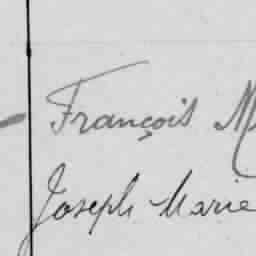 François M
Joseph Marie